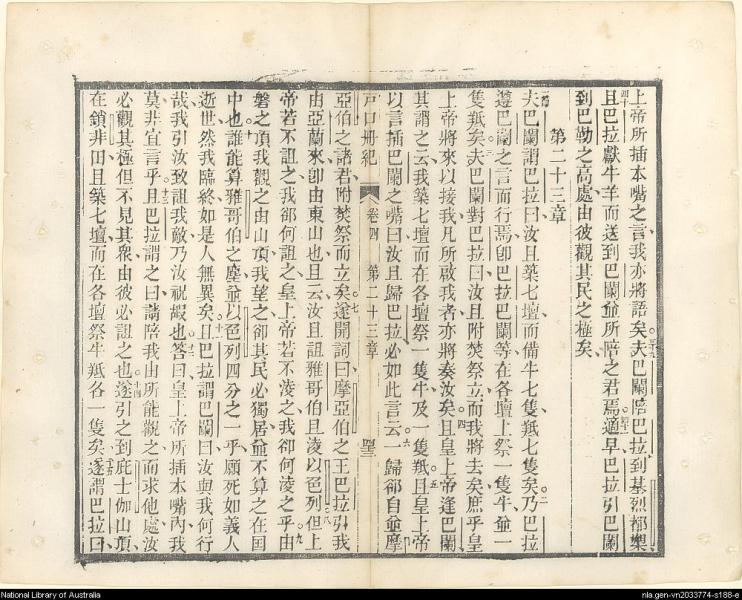 上帝所插本嘴之言我亦將語矣夫巴闌陪巴拉到基烈祁樂
四十
且巴拉獻牛羊而送到巴闌並所陪之君焉適早巴拉引巴闌
到巴勒之高處由彼觀其民之極矣
第二十三章
夫巴闌謂巴拉曰汝且築七壇而備牛七隻羝七隻矣乃巴拉
遵巴闌之言而行焉卽巴拉巴闌等在各壇上祭一隻牛並一
隻羝矣夫巴闌對巴拉曰汝且附焚祭立而我將去矣庶乎皇
上帝將來以接我凡所啟我者亦將奏汝矣且皇上帝逢巴闌
其謂之云我築七壇而在各壇祭一隻牛及一隻羝且皇上帝
以言插巴闌之嘴曰汝且歸巴拉必如此言云一歸郤自並摩
戶口冊紀
卷四
第二十三章
亞伯之諸君附焚祭而立矣遂開詞曰摩亞伯之王巴拉引我
由亞蘭來卽由東山也且云汝且詛雅哥伯且淩以色列但上
帝若不詛之我郤何詛之皇上帝若不淩之我卻何淩之乎由
磐之頂我觀之由山頂我望之卻其民必獨居並不算之在囯
中也誰能算雅哥伯之塵並以色列四分之一乎願死如義人
逝世然我臨終如是人無異矣且巴拉謂巴闌曰汝與我何行
哉我引汝致詛我敵乃汝祝嘏也答曰皇上帝所插本嘴內我
莫非宜言乎且巴拉謂之曰請陪我由所能觀之而求他處汝
必觀其極但不見其衆由彼必詛之也遂引之到庇士伽山頂
在鎖非田且築七壇而在各壇祭牛羝各一隻矣遂謂巴拉曰
National Library of Australia
nla.gen-vn2033774-s188-e